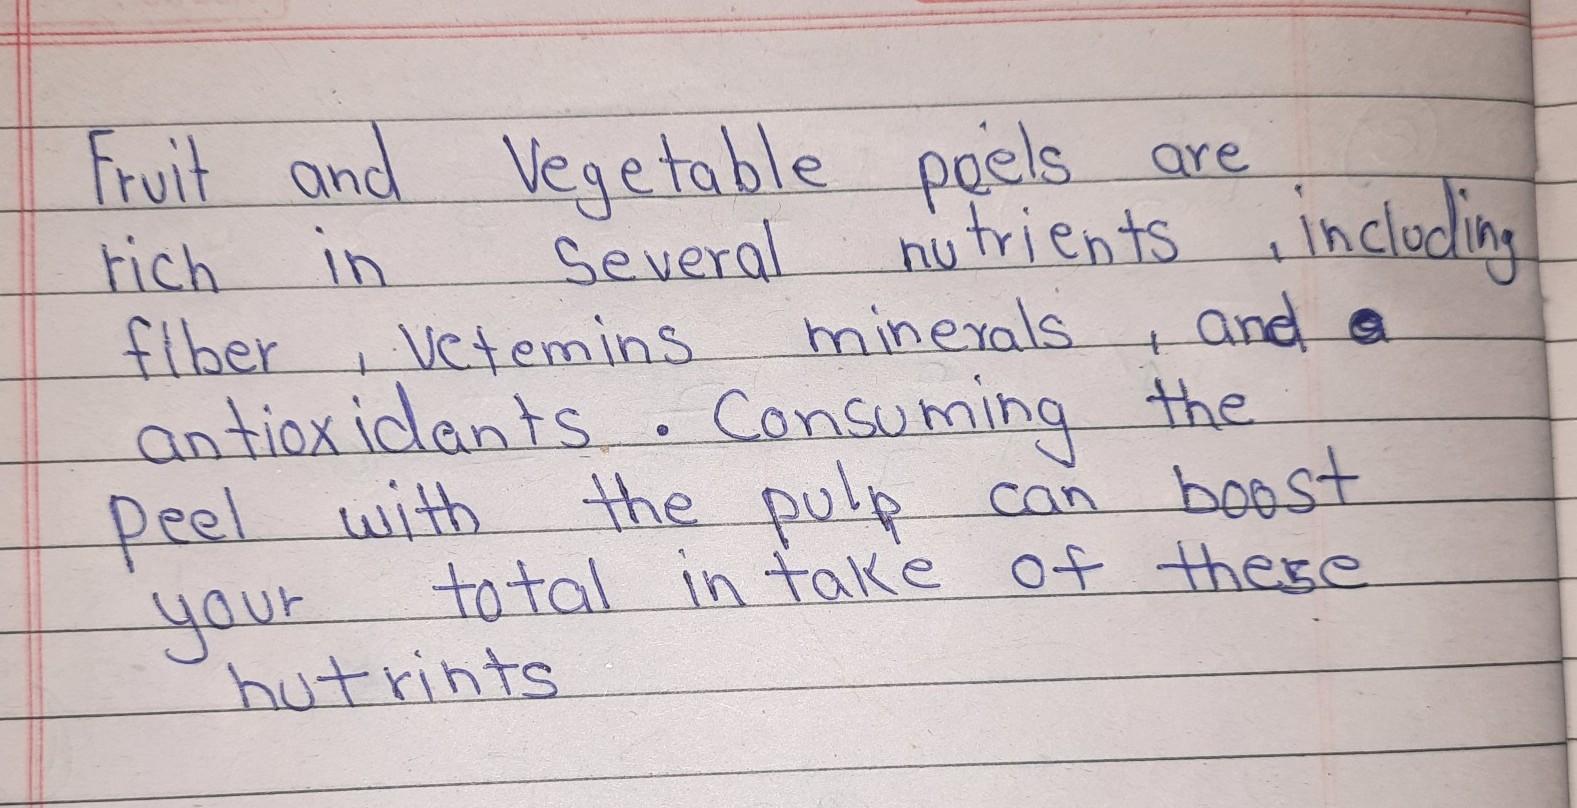 Fruit and Vegetable peels are
rich in several nutrients , including
fiber , vetemins minerals , and
antioxidants . Consuming the
peel with the pulp can boost
your total in take of these
nutrints